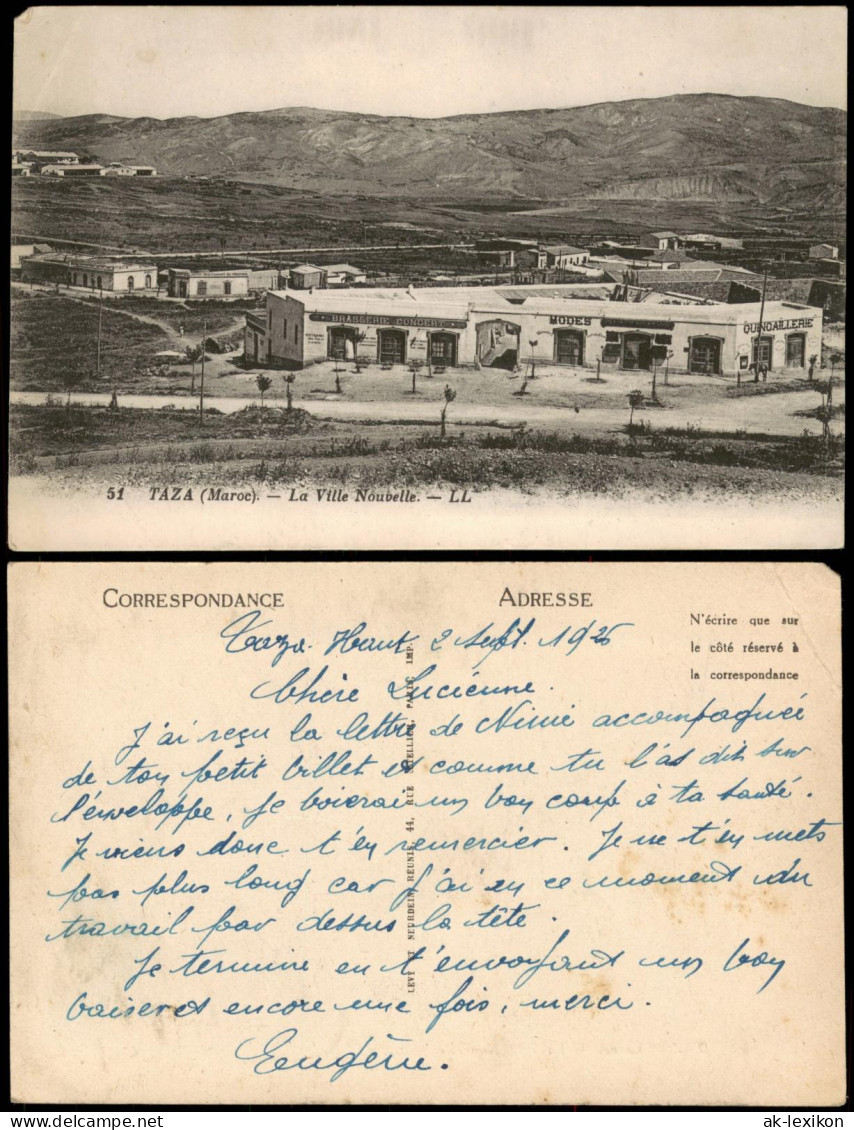 BRASSERIE CONCERT
MODES
QUINCAILLERIE
51 TAZA (Maroc). — La Ville Nouvelle. — LL
CORRESPONDANCE
ADRESSE
N'écrire que sur
le côté réservé à
la correspondance
LEVY ET NEURDEIN REUNIS, 44, RUE LETELLIER, PARIS, IMP.
Taza-Haut 2 Sept. 1926
Chère Lucienne.
J'ai reçu la lettre de Ninie accompagnée
de ton petit billet et comme tu l'as dit sur
l'enveloppe, je boierai un bon coup à ta santé.
Je viens donc t'en remercier. Je ne t'en mets
pas plus long car j'ai en ce moment du
travail par dessus la tête.
Je termine en t'envoyant un bon
baiser et encore une fois, merci.
Eugène.
ak-lexikon